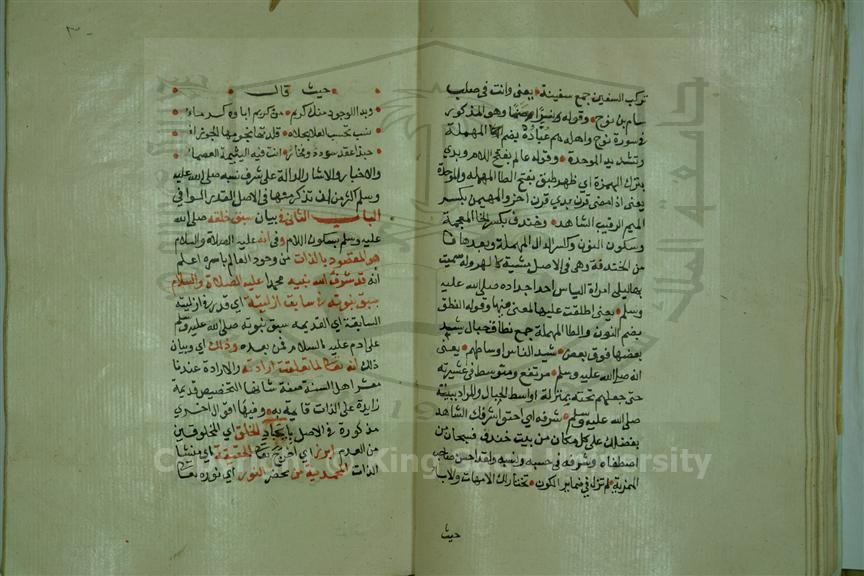 تركب السفين جمع سفينة يعني وانت في صلب
سام بن نوح وقوله نسرا صنما وهو المذكور
في سورة نوح واهله هم عباده بضم المهملة
وتشديد الموحدة وقوله عالم بفتح اللام وبدي
بترك الهمزة اي ظهر طبق بفتح الطا المهمله والموحدة
يعني اذا مضي قرن بدي قرن آخر والمهيمن بكسر
الميم الرقيب الشاهد وخندف بكسر الخا المعجمة
وسكون النون وكسر الدال المهملة وبعدها فا
من الخندفة وهي في الاصل مشية كالهرولة سميت
بها ليلى امراة الياس احد اجداده صلى الله عليه
وسلم يعني اطلقت عليها وقوله النطق
بضم النون والطا المهملة جمع نطاق جبال يشد
بعضها فوق بعض شبد الناس اوساطهم يعني
انه صلى الله عليه وسلم مرتفع ومتوسط في عشيرته
حتى جعلهم تحته بمنزلة اوسط الجبال والمراد ببيته
صلى الله عليه وسلم شرفه اي احتوا شرفك الشاهد
بفضلك على كل مكان من بيت خندف فسبحان من
اصطفاه وشرفه في حسبه ونسبه ولقد احسن صاحب
الهمزية لم تزل في ضماير الكون تختار لك الامهات والاب
حيث
حيث قال
وبدا للوجود منك كريم من كريم اباوه كرماء
نسب تحسب العلا بحلاه قلدتها نجومها الجوزاء
حبذا عقد سودد وفخار انت فيه اليتيمة العصماء
والاخبار والاثار الدالة على شرف نسبه صلى الله عليه
وسلم اكثر من ان تذكر منها في الاصل القدر الوافي
الباب الثاني في بيان سبق خلقه صلى الله
عليه وسلم بسكون اللام وفي انه عليه الصلاة والسلام
هو المقصود بالذات من وجود العالم باسره اعلم
انه قد شرف الله نبيه محمدا عليه الصلاة والسلام
بسبق نبوته في سابق ازليته اي قدره وازليته
السابقة اي القديمه سبق نبوته صلى الله عليه وسلم
على ادم عليه السلام فمن بعده وذلك اي وبيان
ذلك انه تعالى لما تعلقت ارادته والارادة عندنا
معشر اهل السنة صفة شانها التخصيص قديمة
زايدة على الذات قايمة به وفيها اقوال اخري
مذكورة في الاصل بايجاد الخلق اي المخلوقين
من العدم ابرز اي اخرج تعالى الحقيقة اي منشا
الذات المحمدية من محض النور اي نوره تعالى
Copyright © King Saud University